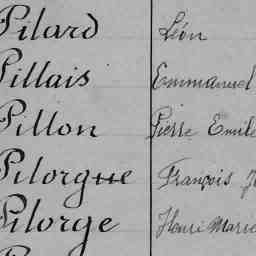 Pilard Léon
Pillais Emmanuel
Pillon Pierre Emile
Pilorgue François
Pilorge Henri Marie